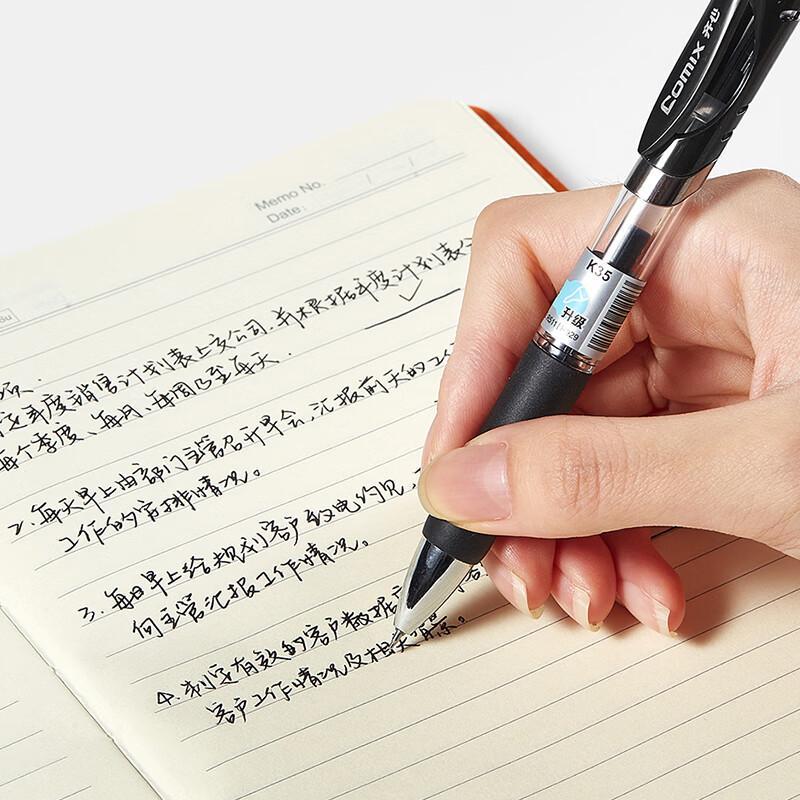 Memo No.
Date:
Comix 齐心
K35
升级
年度销售计划表上交公司,并根据年度计划表
每个季度、每月、每周乃至每天.
2.每天早上由部门主管召开早会,汇报前天的工
工作的安排情况。
3.每日早上给规划客户致电约见,
向主管汇报工作情况。
4.制定有效的客户数据
客户工作情况及相关背景。